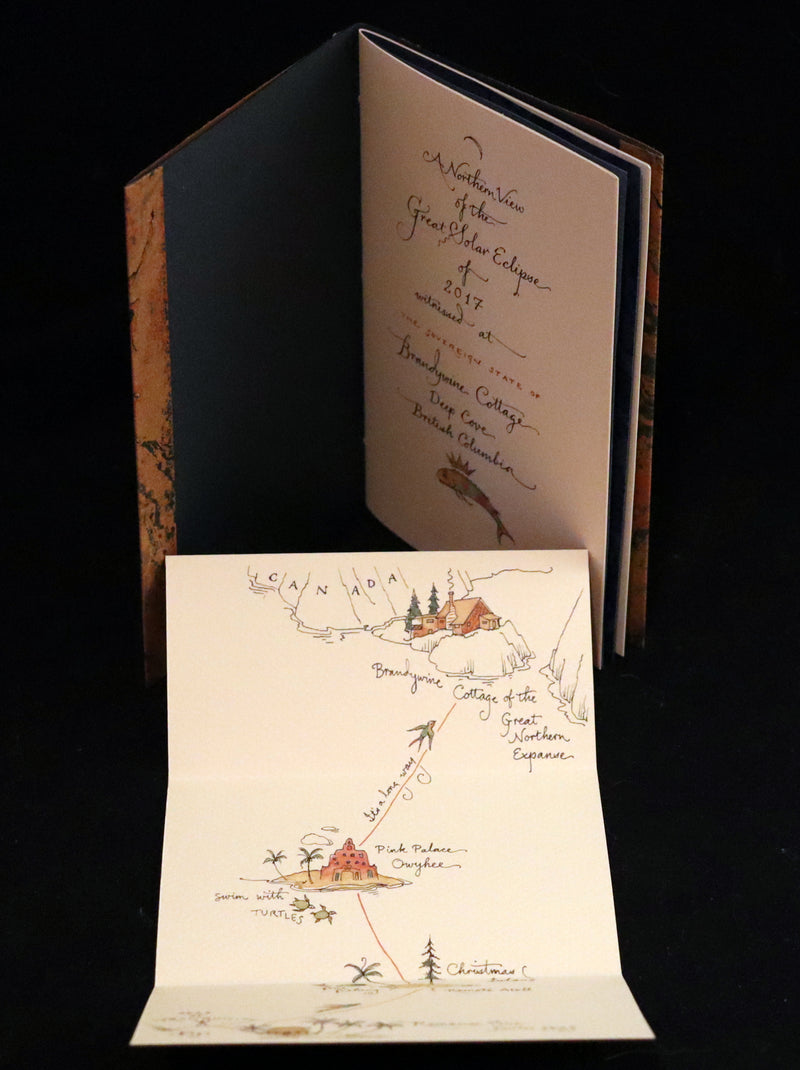 A Northern View
of the
Great Solar Eclipse
of
2017
witnessed at
THE SOVEREIGN STATE OF
Brandywine Cottage
Deep Cove
British Columbia
CANADA
Brandywine Cottage of the
Great
Northern
Expanse
It's a long way
Pink Palace
Owyhee
swim with
TURTLES
Christmas
Island
Remote Atoll